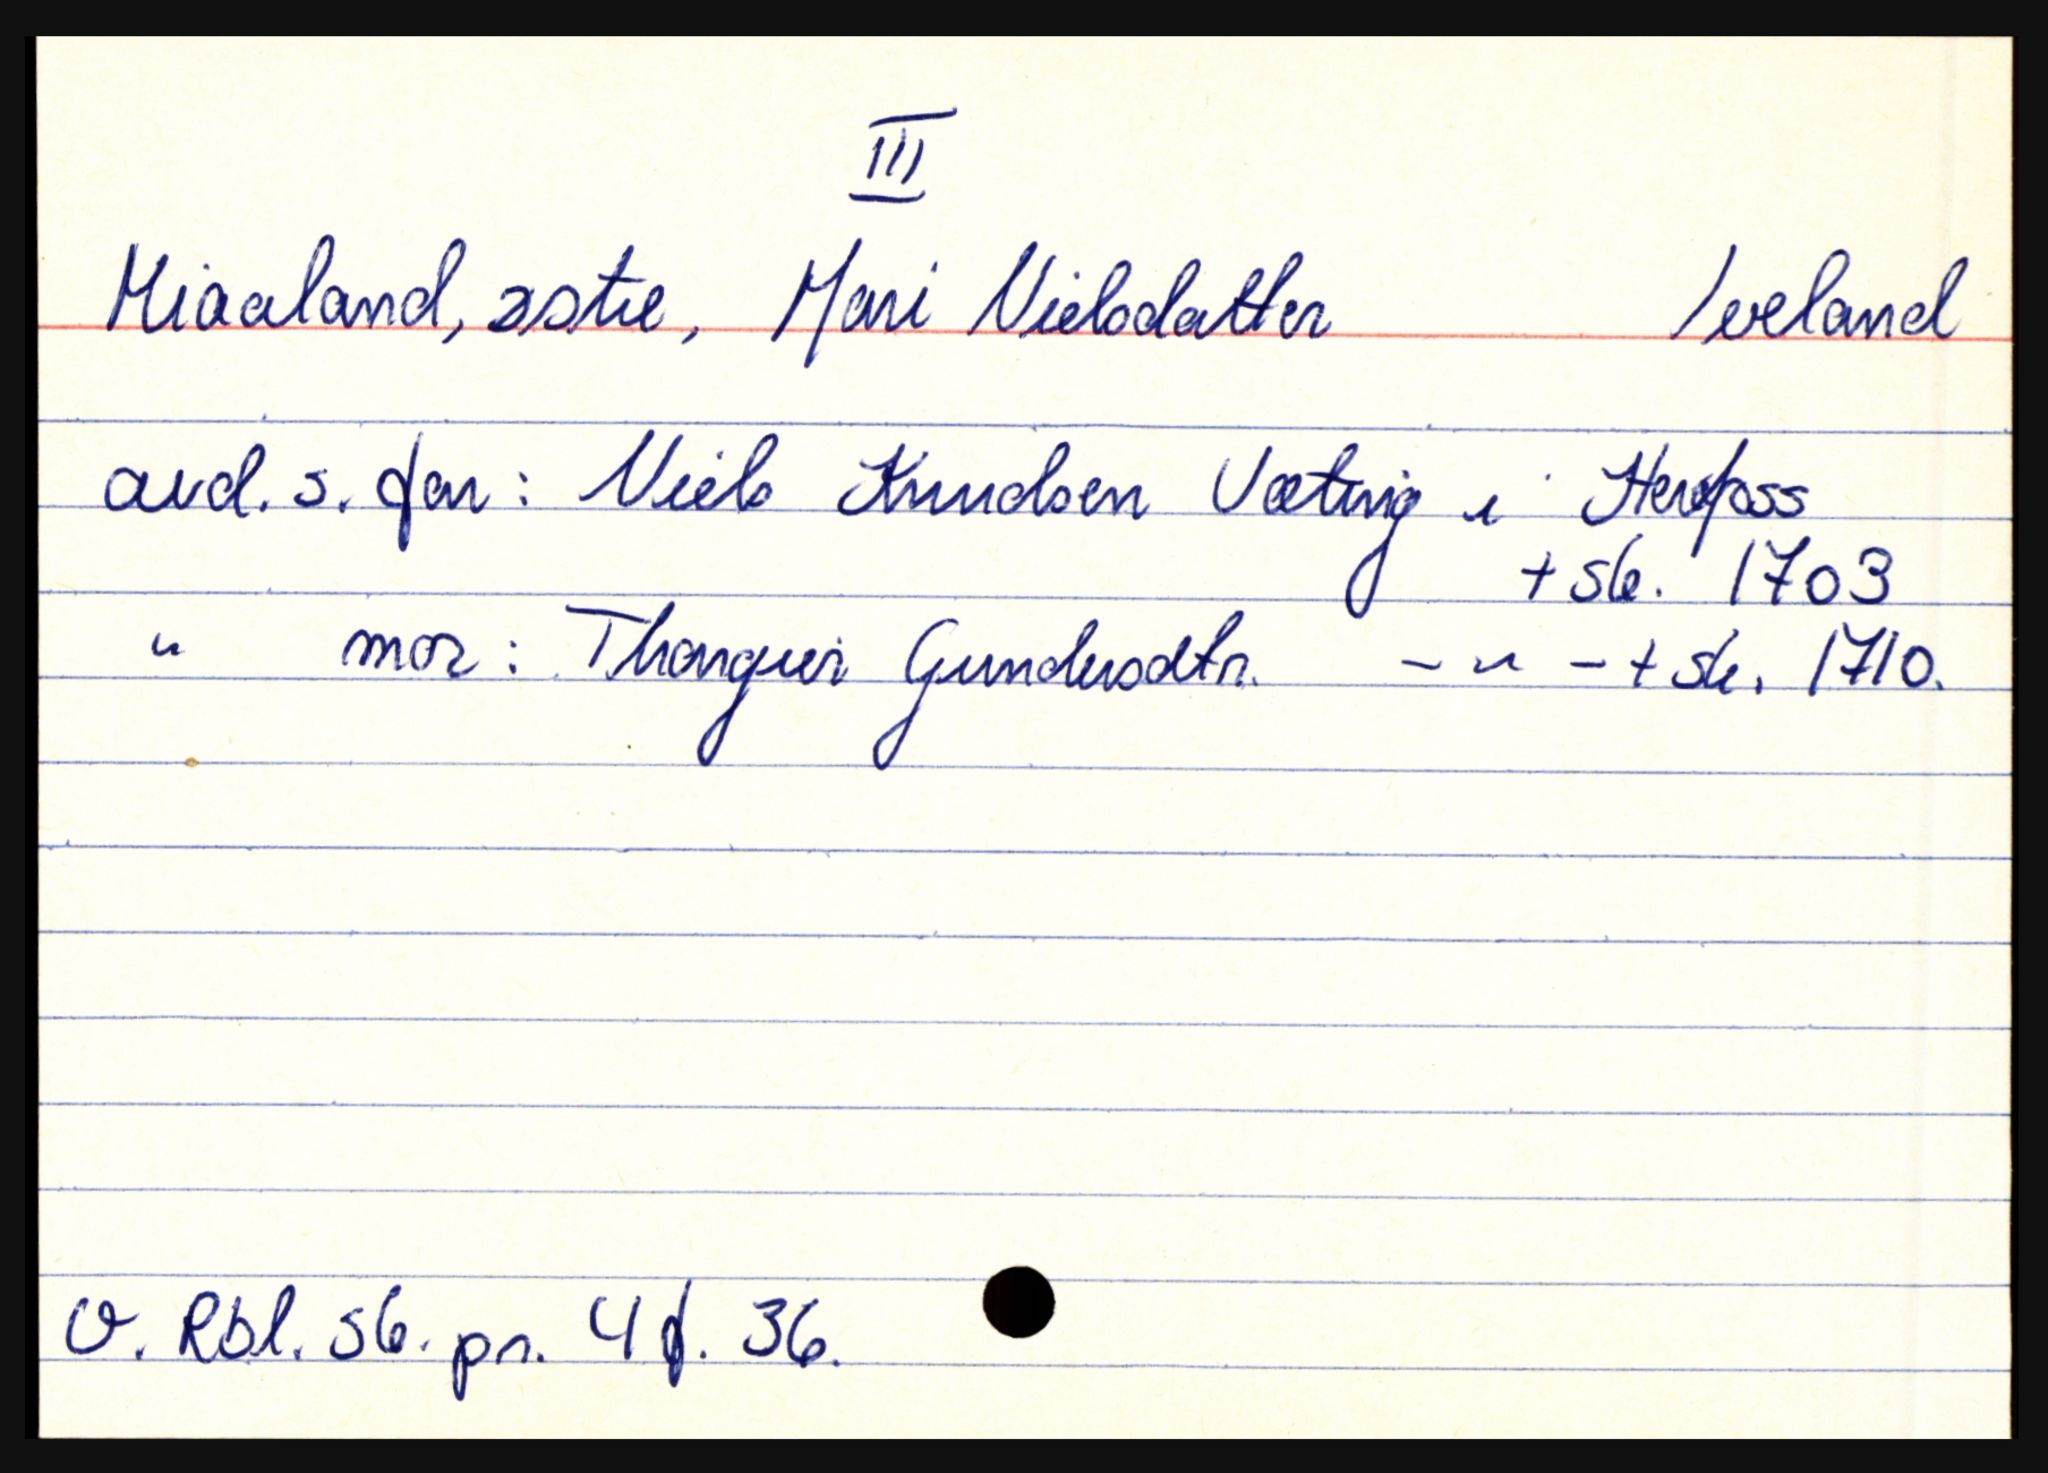 III
Miaaland, østre, Mari Nielsdatter Iveland
avd. s. far: Niels Knudsen Vætting i Herefoss
+ sk. 1703
" mor: Thorguer Gundersdtr. - " - + sk. 1710.
V. Rbl. sk. pr. 4 f. 36.